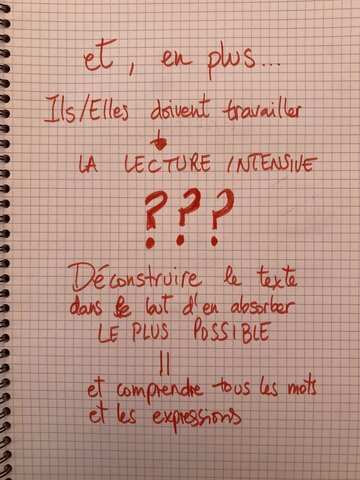 et, en plus...
Ils/Elles doivent travailler
↓
LA LECTURE INTENSIVE
???
Déconstruire le texte
dans le but d'en absorber
LE PLUS POSSIBLE
=
et comprendre tous les mots
et les expressions